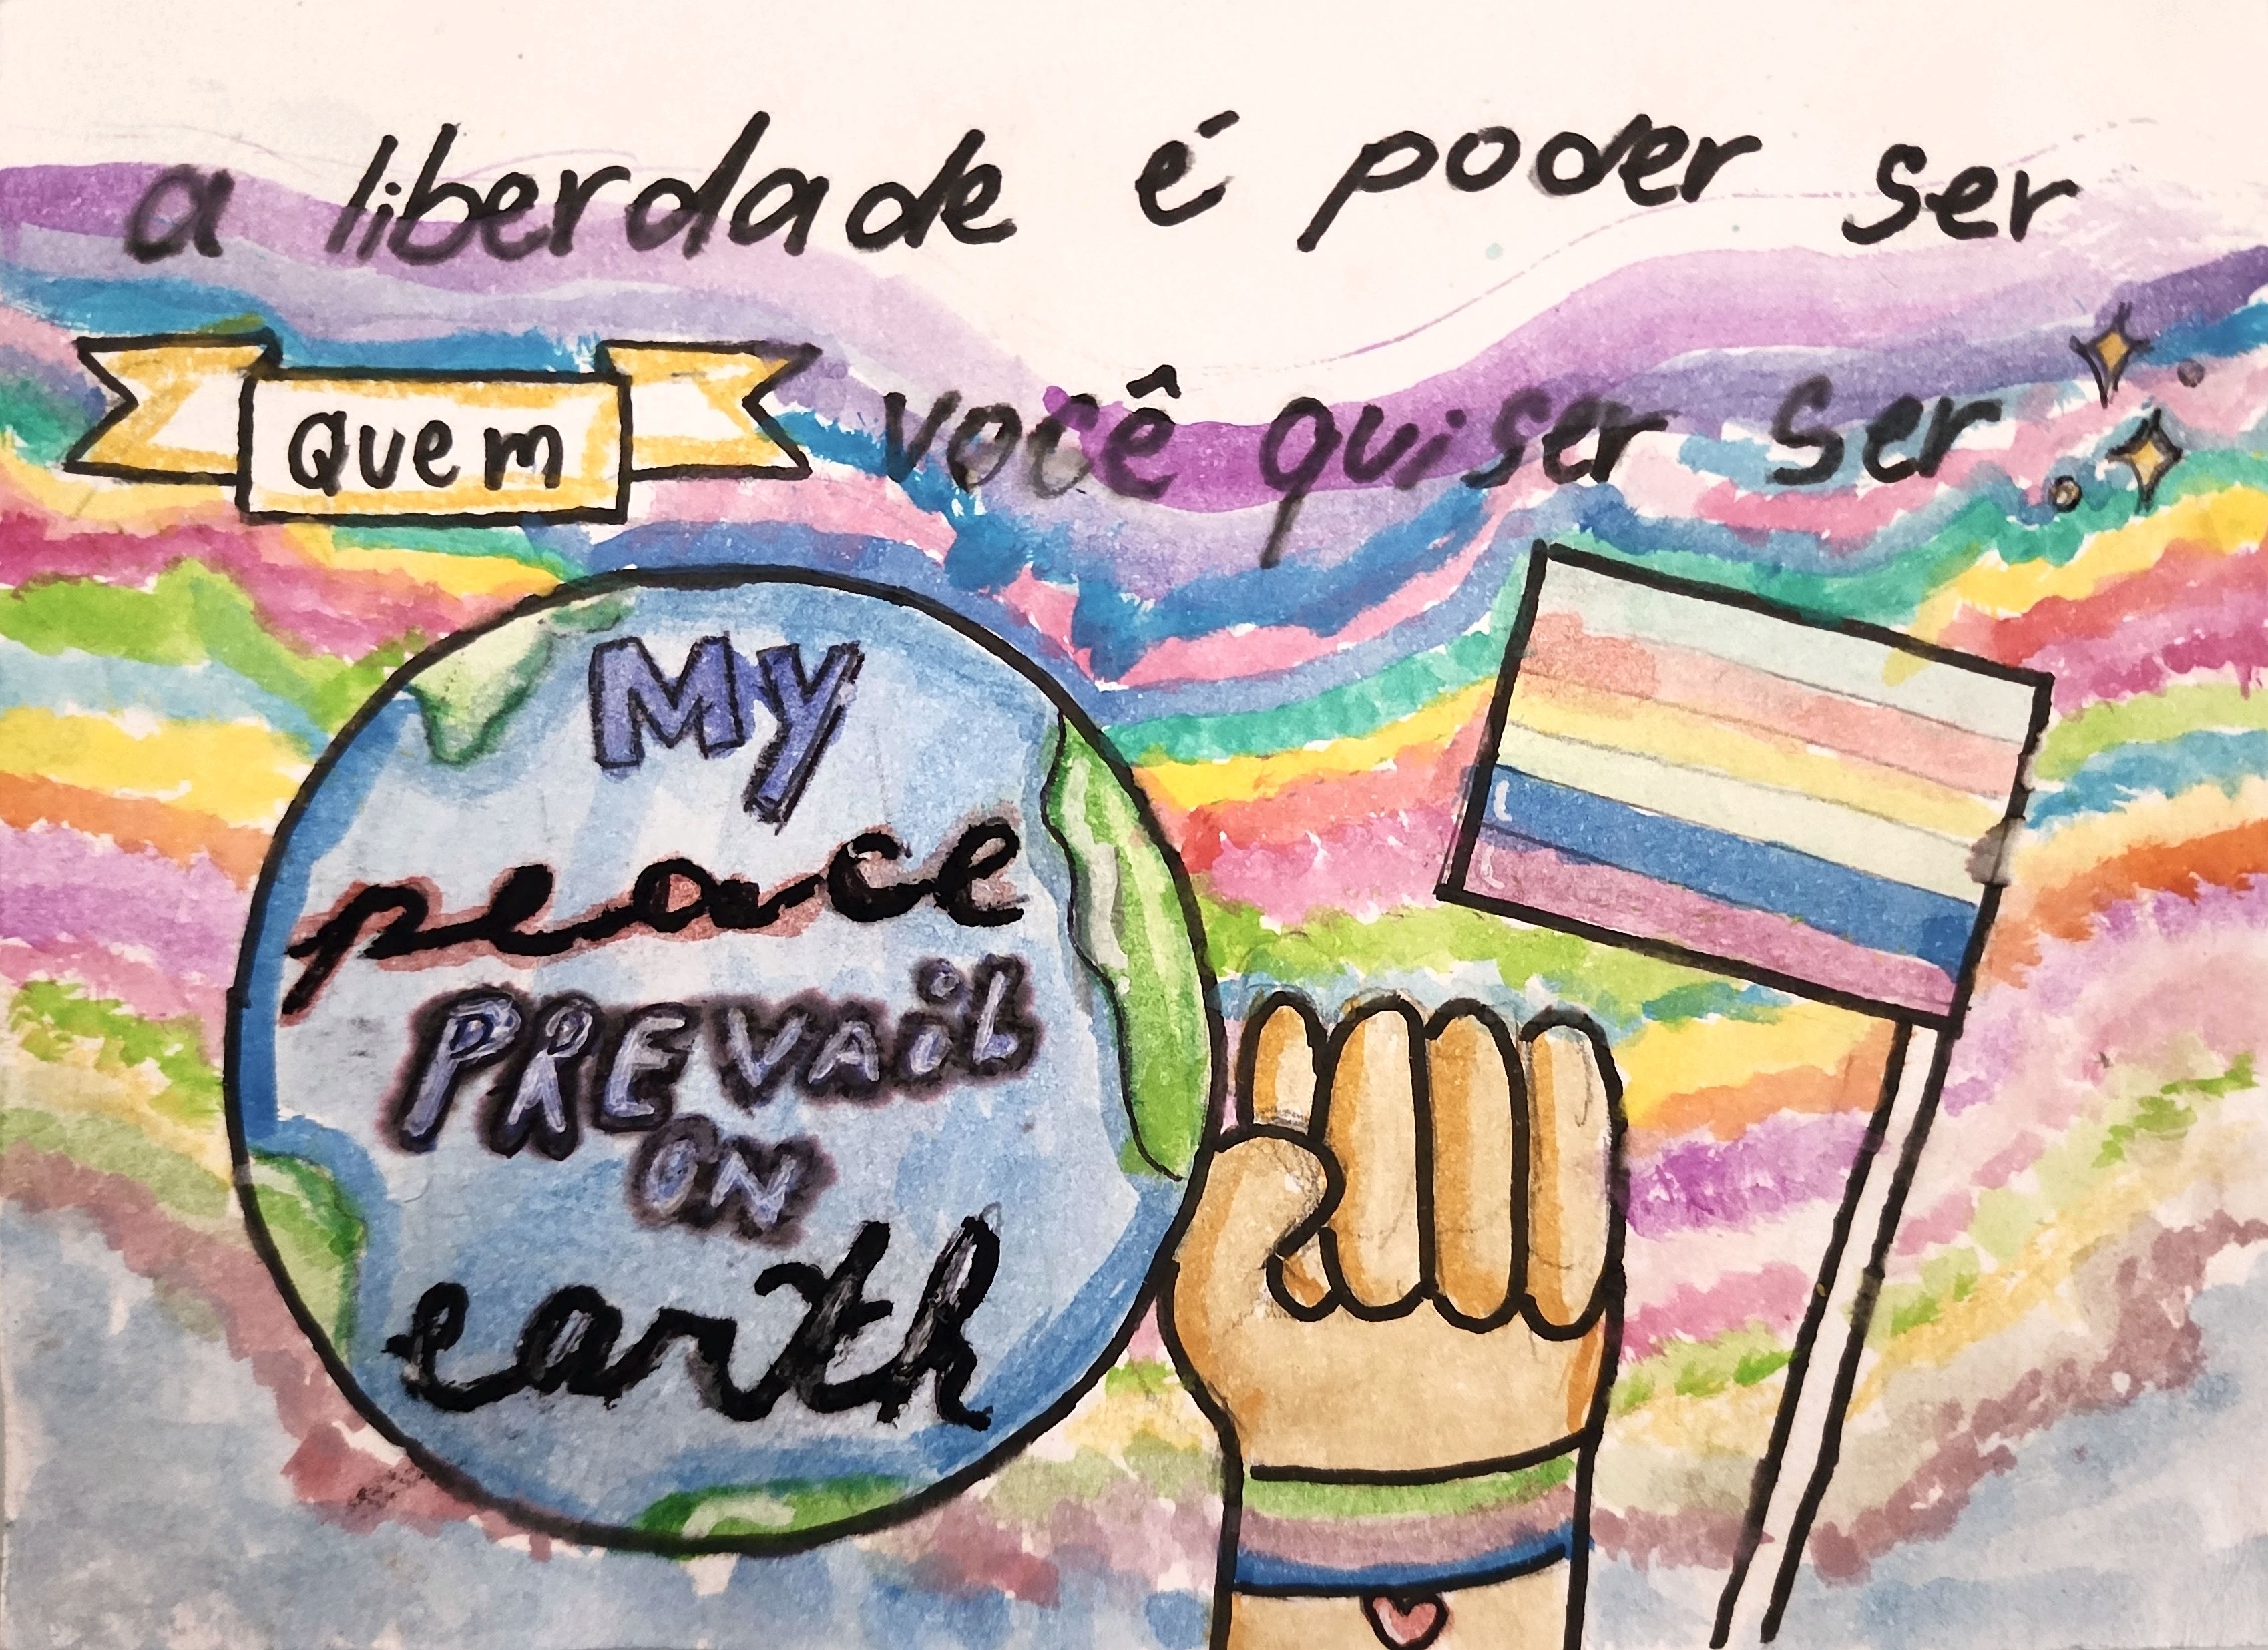 a liberdade é poder ser
quem você quiser ser
My
peace
PREVAiL
ON
earth